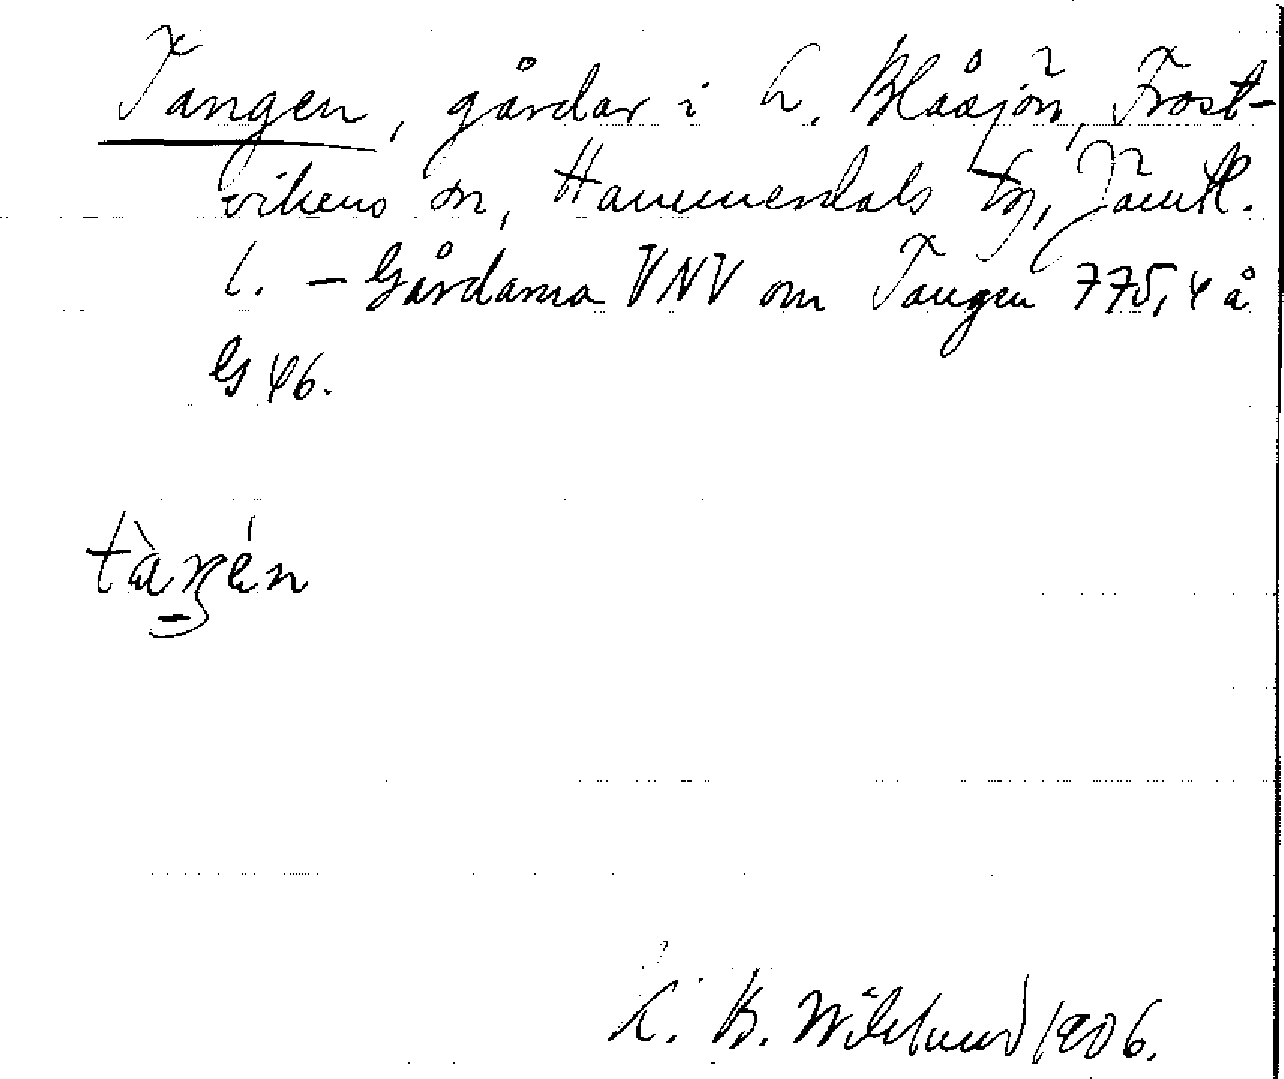 Tangen, gårdar i L. Blåsjön, Frost-
vikens sn, Hammerdals tg, Jämtl.
l. – Gårdarna VNV om Tangen 775,4 å
G 46.
tàŋén
K. B. Wiklund 1906.